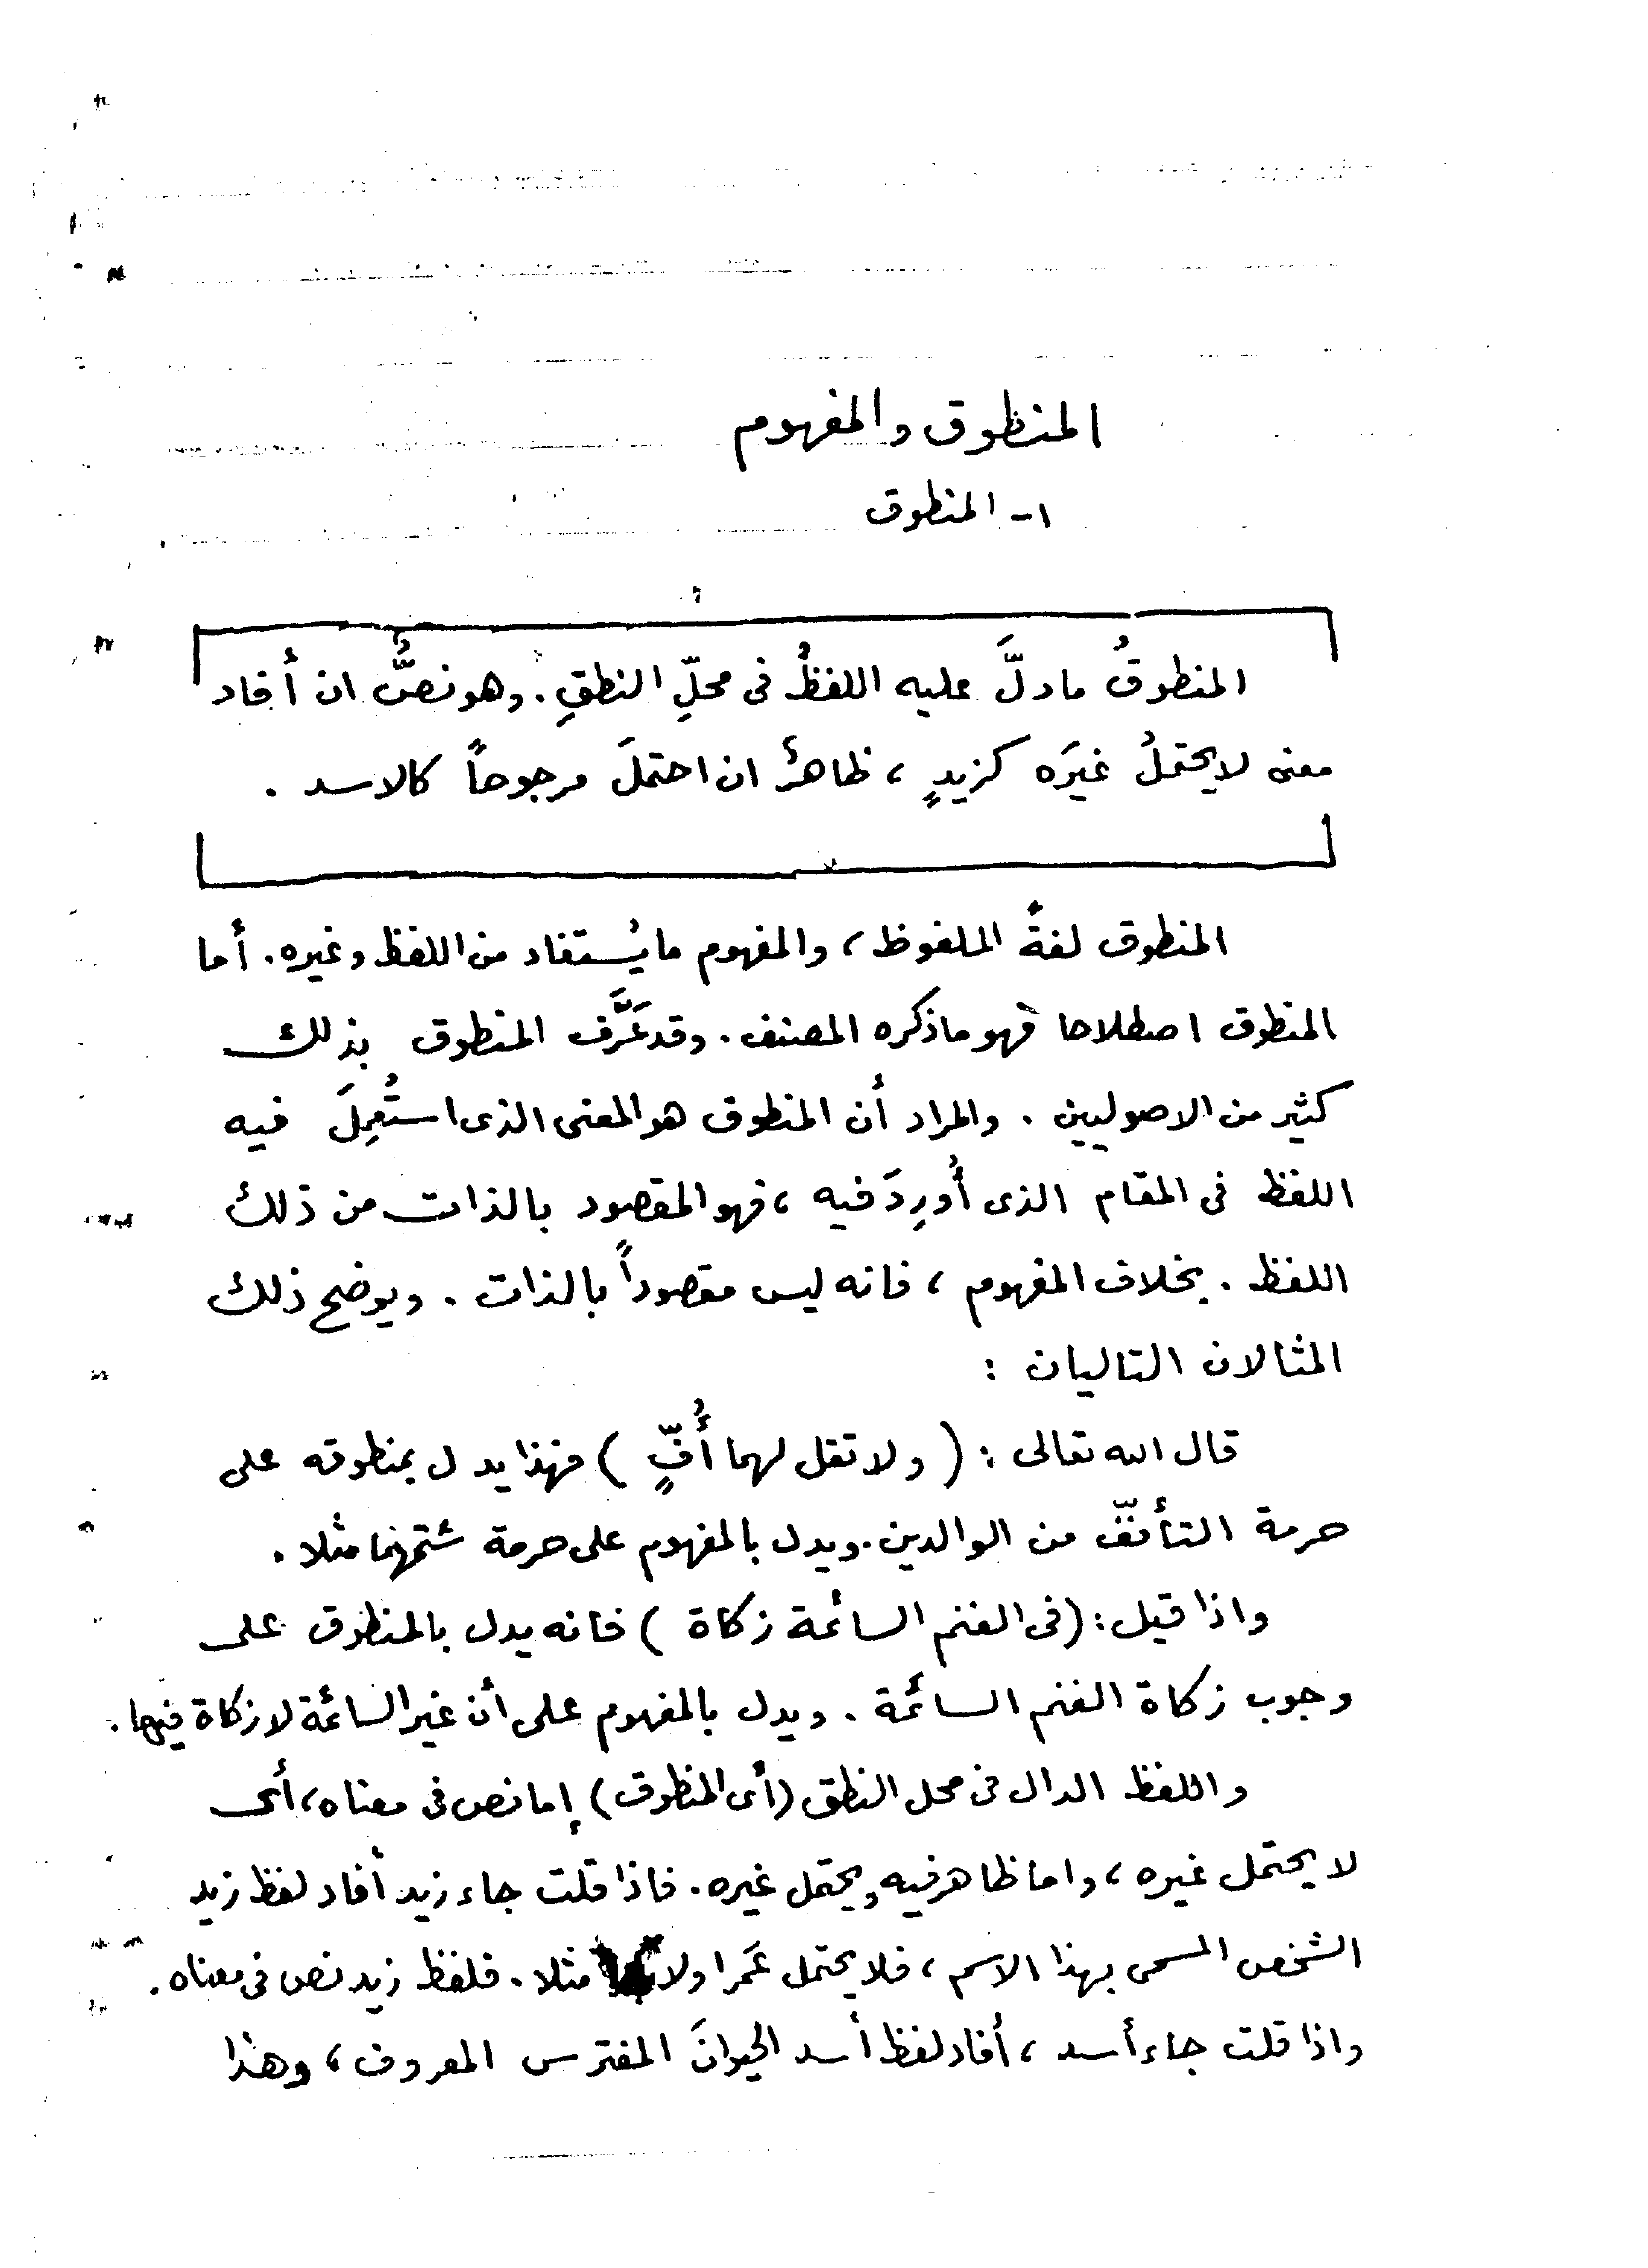 المنطوق والمفهوم
١- المنطوق
المنطوقُ مادلَّ عليه اللفظُ فى محلِّ النطقِ. وهو نصٌّ ان أفاد
معنى لايحتملُ غيرَه كزيدٍ ، ظاهرٌ ان احتملَ مرجوحاً كالاسد .
المنطوق لغةً الملفوظ ، والمفهوم ما يُستفاد من اللفظ وغيره. أما
المنطوق اصطلاحا فهو ماذكره المصنف. وقد عَرَّف المنطوق بذلك
كثير من الاصوليين . والمراد أن المنطوق هو المعنى الذى استُعمِلَ فيه
اللفظ فى المقام الذى أُورِدَ فيه ، فهو المقصود بالذات من ذلك
اللفظ . بخلاف المفهوم ، فانه ليس مقصوداً بالذات . ويوضح ذلك
المثالان التاليان :
قال الله تعالى : ( ولا تقل لهما أُفٍّ ) فهذا يدل بمنطوقه على
حرمة التأفّف من الوالدين. ويدل بالمفهوم على حرمة شتمهما مثلا .
واذا قيل : (فى الغنم السائمة زكاة ) فانه يدل بالمنطوق على
وجوب زكاة الغنم السائمة . ويدل بالمفهوم على أن غير السائمة لا زكاة فيها .
واللفظ الدال فى محل النطق (أى المنطوق) إما نص فى معناه ، أى
لا يحتمل غيره ، واما ظاهر فيه ويحتمل غيره. فاذا قلت جاء زيد أفاد لفظ زيد
الشخص المسمى بهذا الاسم ، فلا يحتمل عَمرا ولا مثلا . فلفظ زيد نص فى معناه .
واذا قلت جاء أسد ، أفاد لفظ أسد الحيوانَ المفترس المعروف ، وهذا